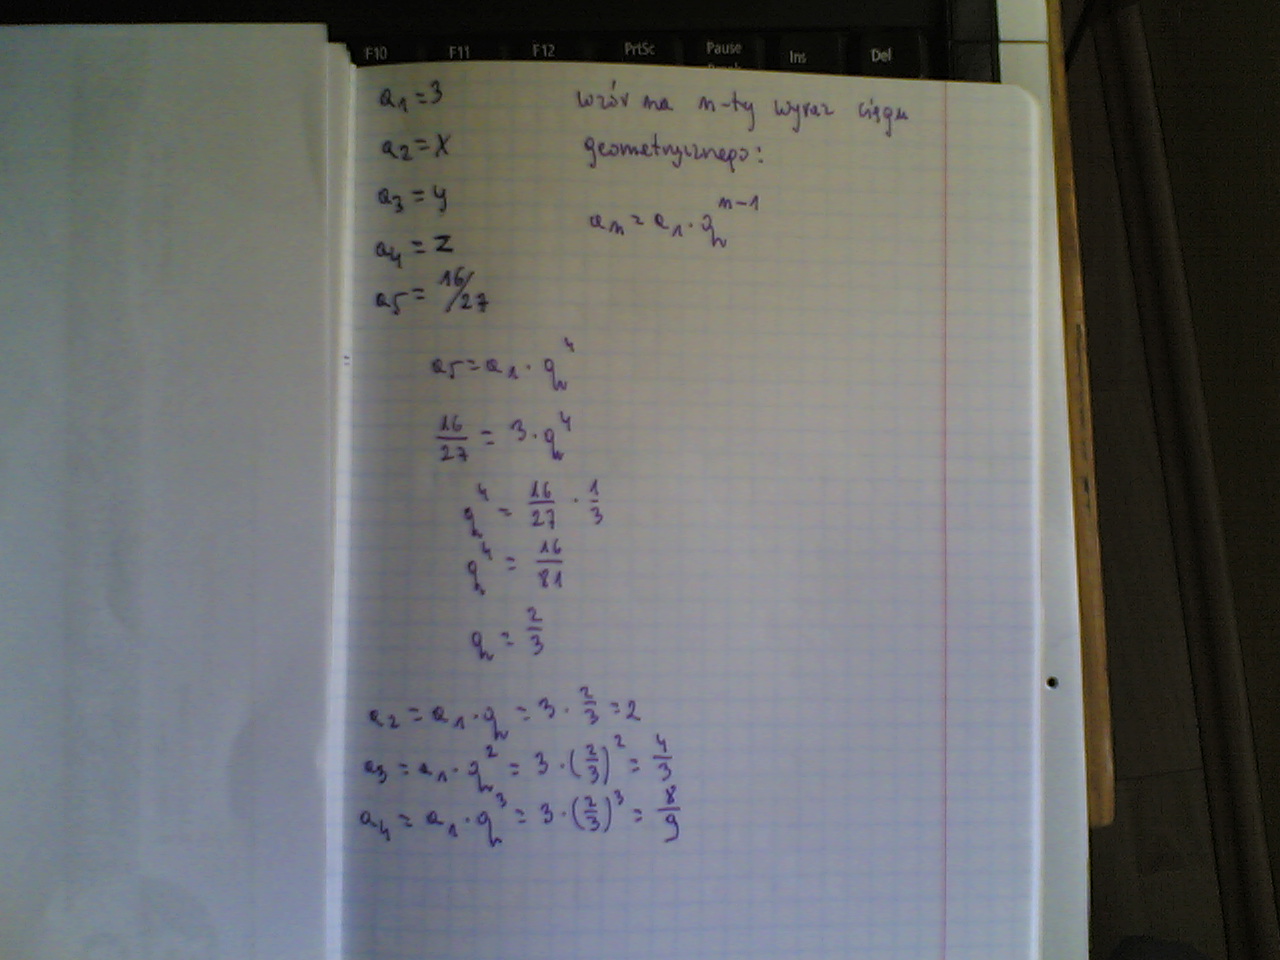 F10 F11 F12 PrtSc Pause Ins Del
a₁ = 3
a₂ = x
a₃ = y
a₄ = z
a₅ = 16/27
wzór na n-ty wyraz ciągu
geometrycznego:
aₙ = a₁ · q^(n-1)
a₅ = a₁ · q⁴
16/27 = 3 · q⁴
q⁴ = 16/27 · 1/3
q⁴ = 16/81
q = 2/3
a₂ = a₁ · q = 3 · 2/3 = 2
a₃ = a₁ · q² = 3 · (2/3)² = 4/3
a₄ = a₁ · q³ = 3 · (2/3)³ = 8/9